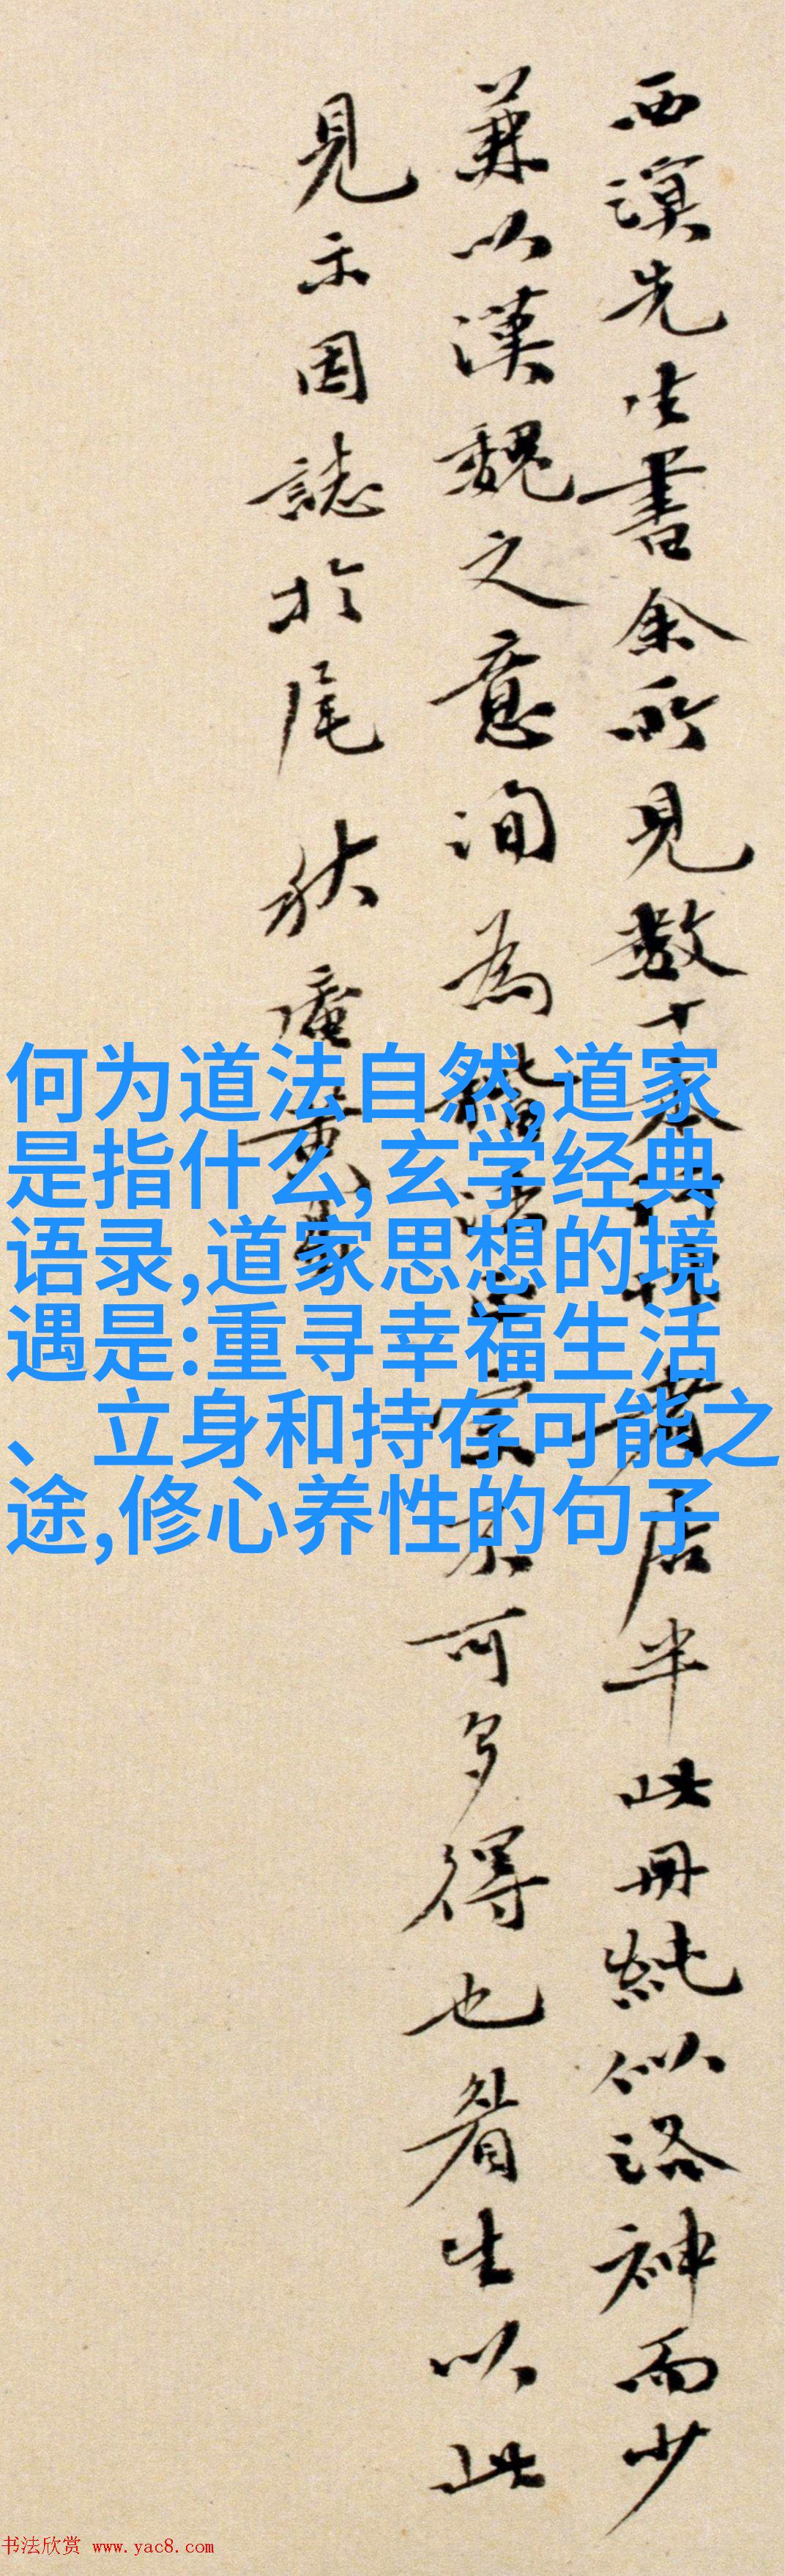 西溟先生書余所見數十
者居半此冊純似洛神而少
兼以漢魏之意洵為
可多得也眉生以此
見示因誌於尾 秋盦黃易
何为道法自然,道家
是指什么,玄学经典
语录,道家思想的境
遇是:重寻幸福生活
、立身和持存可能之
途,修心养性的句子
书法欣赏 www.yac8.com